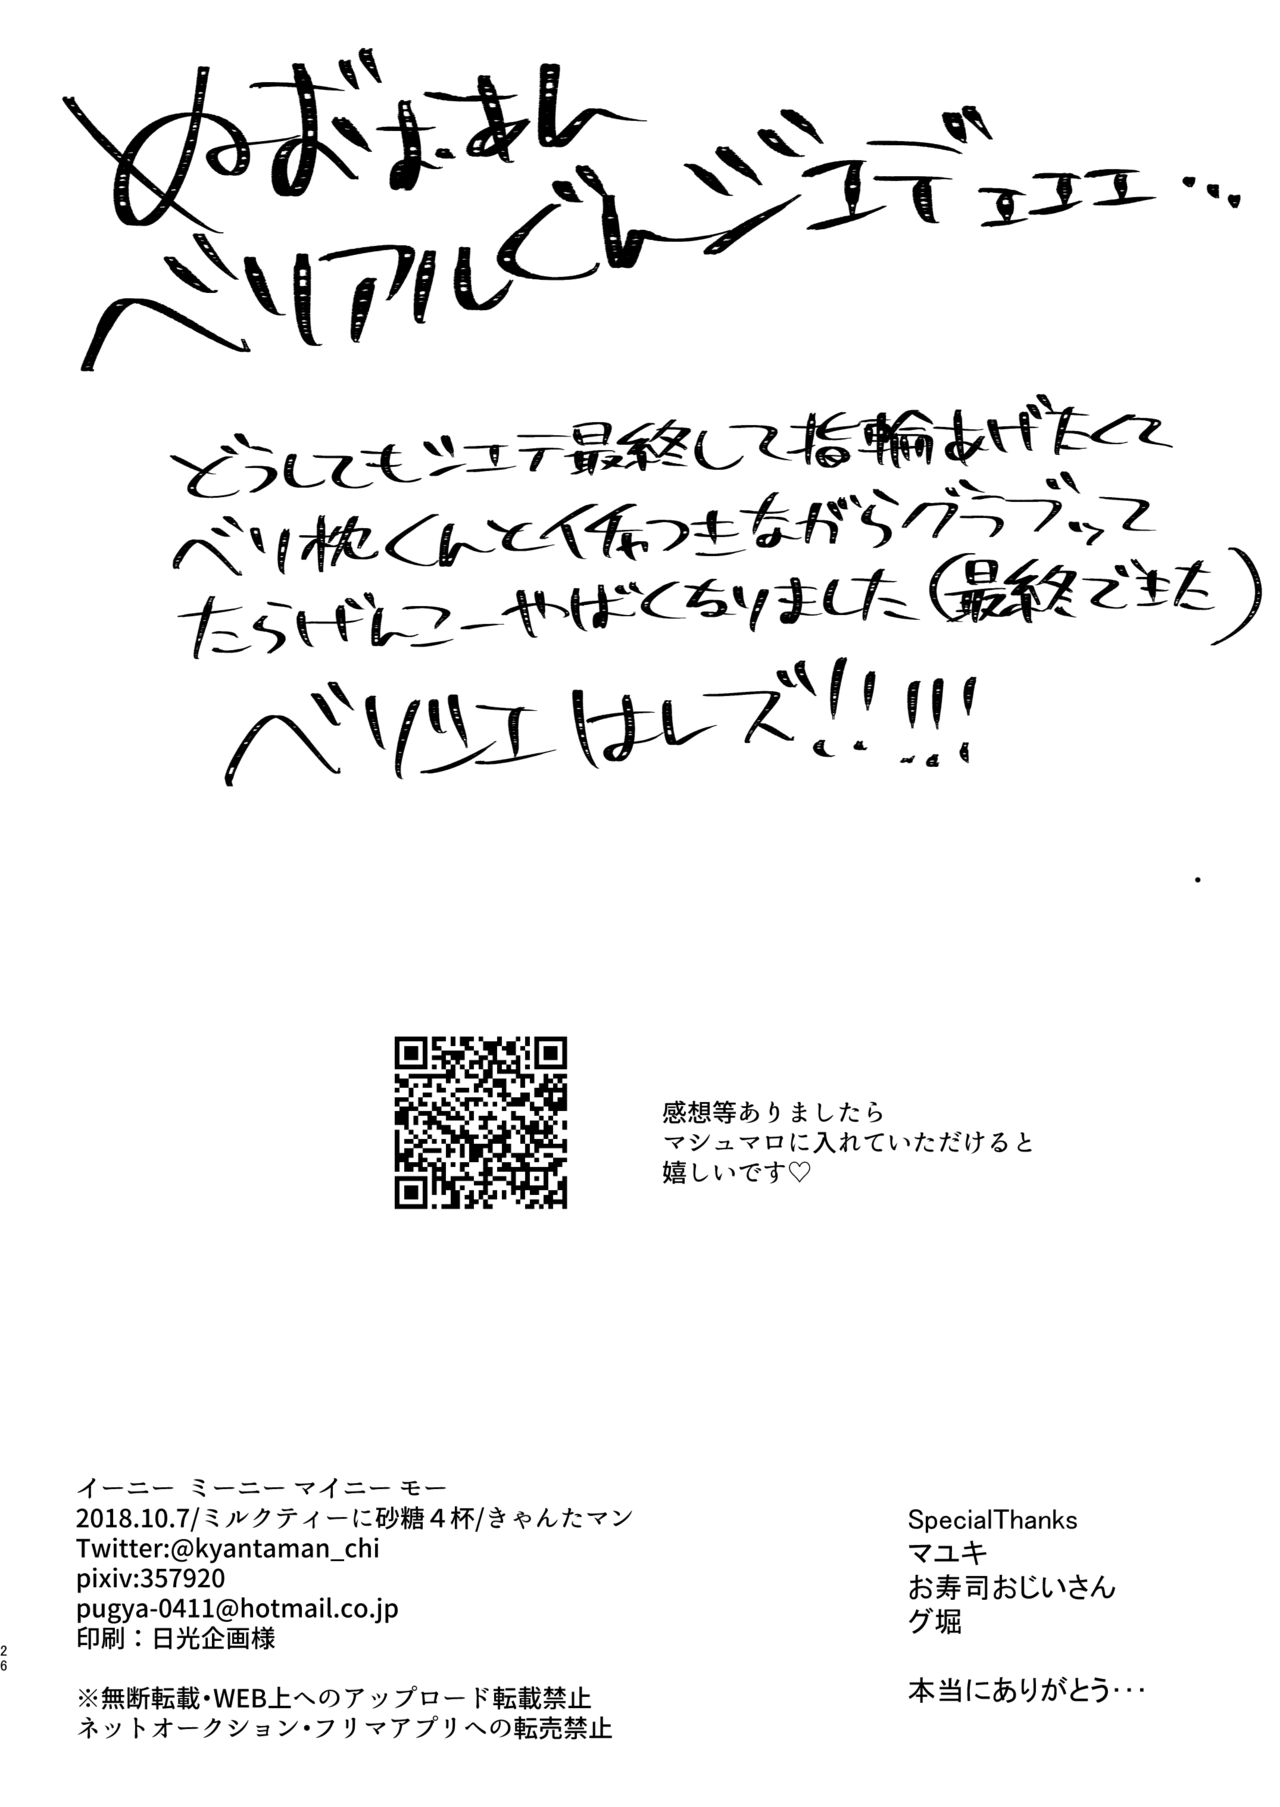 ぬおぉあん
ベリアルぐんジエデェエエ…
どうしてもジエテ最終して指輪あげたくて
ベリ枕くんとイチャつきながらグラブッて
たらげんこーやばくなりました(最終できた)
ベリジエはレズ!!!!!
感想等ありましたら
マシュマロに入れていただけると
嬉しいです♡
イーニー ミーニー マイニー モー
2018.10.7/ミルクティーに砂糖４杯/きゃんたマン
Twitter:@kyantaman_chi
pixiv:357920
pugya-0411@hotmail.co.jp
印刷：日光企画様
※無断転載・WEB上へのアップロード転載禁止
ネットオークション・フリマアプリへの転売禁止
SpecialThanks
マユキ
お寿司おじいさん
グ堀
本当にありがとう・・・
26